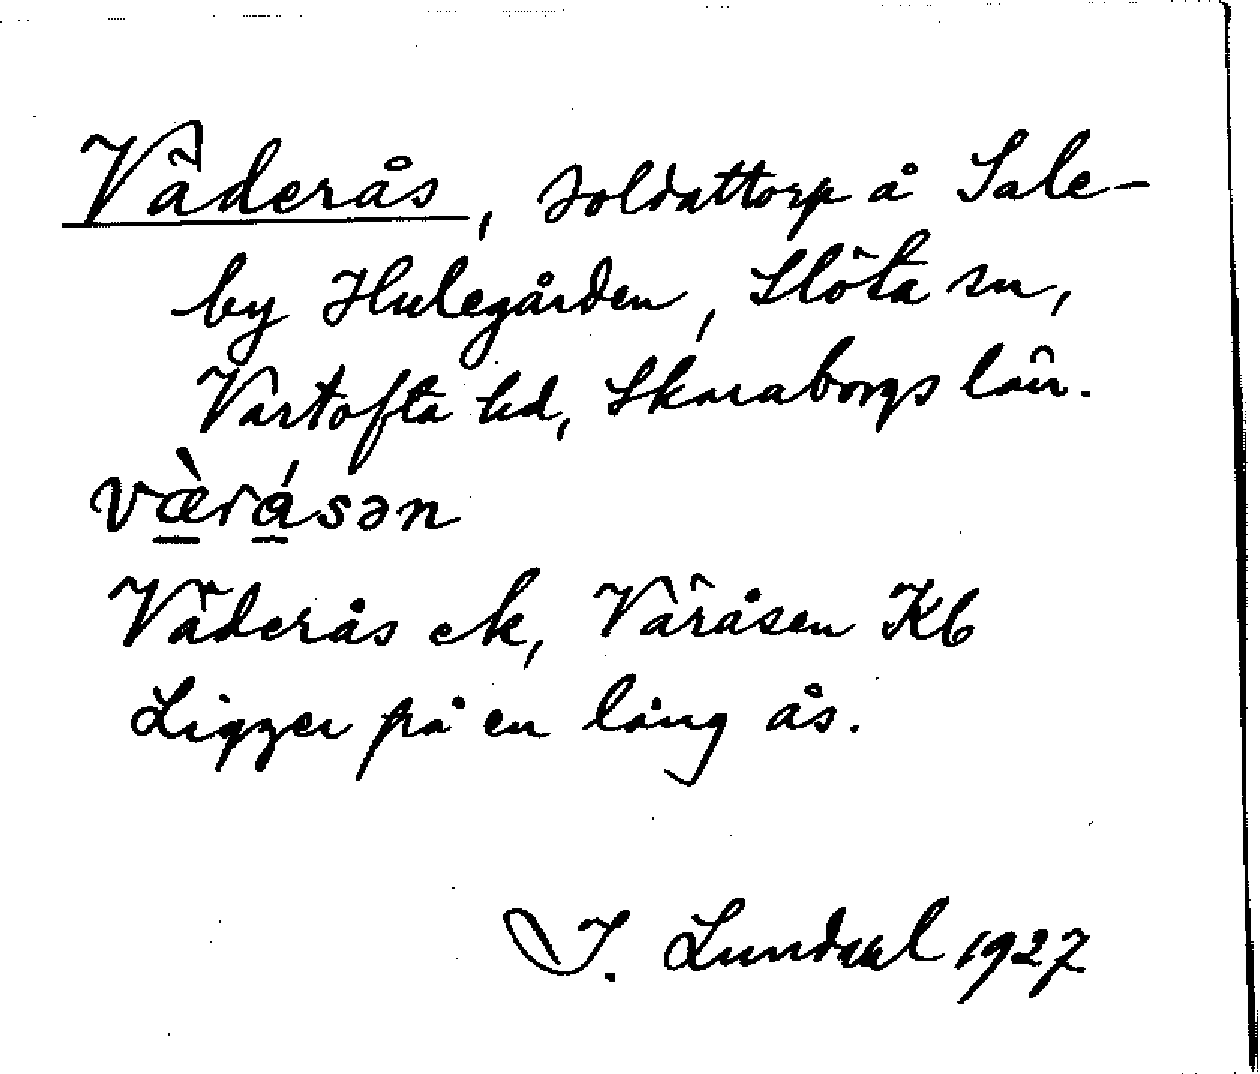 Väderås, soldattorp å Sale-
by Hulegården, Slöta sn,
Vartofta hd, Skaraborgs län.
væ̀rásən
Väderås ek, Väråsen Kb
Ligger på en lång ås.
I. Lundahl 1927